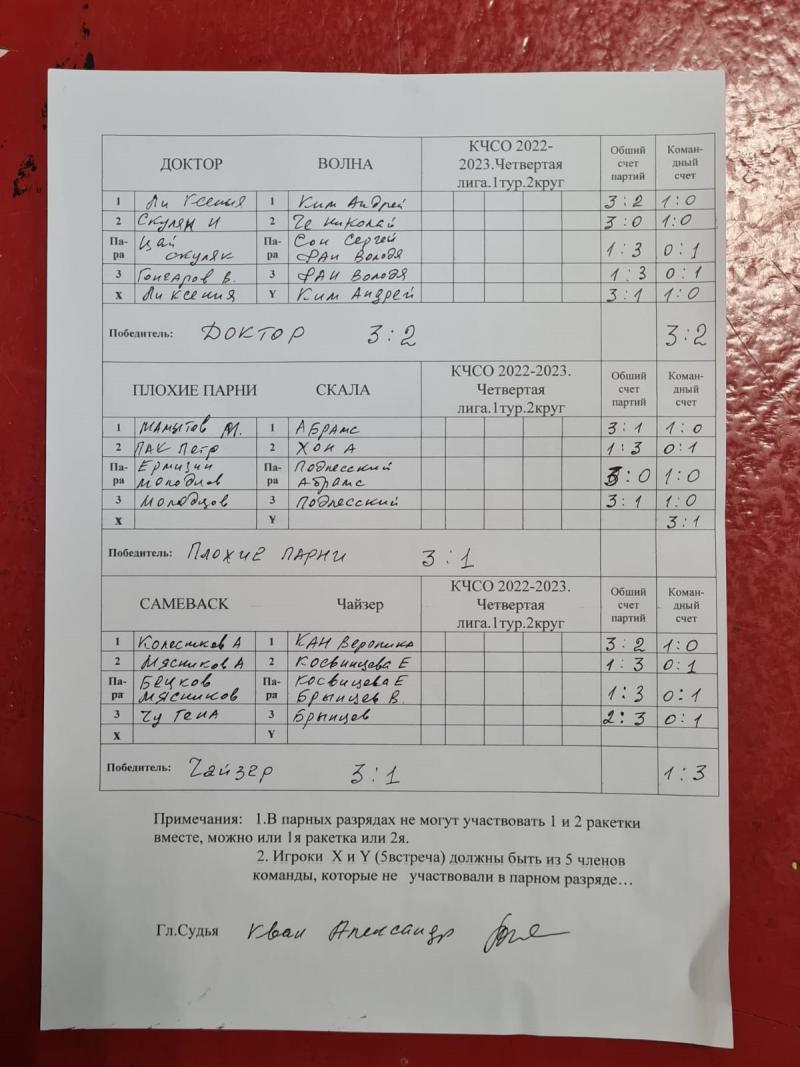 ДОКТОР ВОЛНА КЧСО 2022-2023.Четвертая лига.1тур.2круг Общий счет партий Коман-дный счет
1 Ли Ксения 1 Ким Андрей 3:2 1:0
2 Скулян И 2 Че Николай 3:0 1:0
Па-ра Цай Па-ра Сон Сергей Фан Володя 1:3 0:1
3 Гончаров В. 3 Фан Володя 1:3 0:1
X Ли Ксения Y Ким Андрей 3:1 1:0
Победитель: ДОКТОР 3:2 3:2
ПЛОХИЕ ПАРНИ СКАЛА КЧСО 2022-2023. Четвертая лига.1тур.2круг Общий счет партий Коман-дный счет
1 Мамытов М. 1 Абрамс 3:1 1:0
2 Пак Петр 2 Хон А 1:3 0:1
Па-ра Молодцов Па-ра Подлесский Абрамс 3:0 1:0
3 Молодцов 3 Подлесский 3:1 1:0
X Y 3:1
Победитель: ПЛОХИЕ ПАРНИ 3:1
CAMEBACK Чайзер КЧСО 2022-2023. Четвертая лига.1тур.2круг Общий счет партий Коман-дный счет
1 Колесников А 1 КАН Вероника 3:2 1:0
2 Мясников А 2 Косвинцева Е 1:3 0:1
Па-ра Бецков Мясников Па-ра Косвинцева Е Брынцев В. 1:3 0:1
3 Чу Гена 3 Брынцев 2:3 0:1
X Y
Победитель: Чайзер 3:1 1:3
Примечания: 1.В парных разрядах не могут участвовать 1 и 2 ракетки
вместе, можно или 1я ракетка или 2я.
2. Игроки X и Y (5встреча) должны быть из 5 членов
команды, которые не участвовали в парном разряде…
Гл.Судья Кван Александр